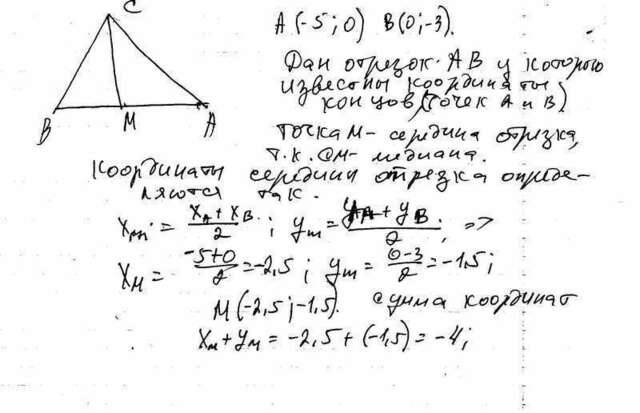 C
B M A
A(-5; 0) B(0; -3).
Дан отрезок AB у которого
известны координаты
концов (точек A и B)
точка M - середина отрезка,
т.к. CM - медиана.
Координаты середины отрезка опреде-
ляются так.
Xm = (XA + XB)/2 ; ym = (yA + yB)/2 ; =>
XM = (-5+0)/2 = -2,5 ; ym = (0-3)/2 = -1,5 ;
M(-2,5; -1,5). сумма координат
XM + yM = -2,5 + (-1,5) = -4;